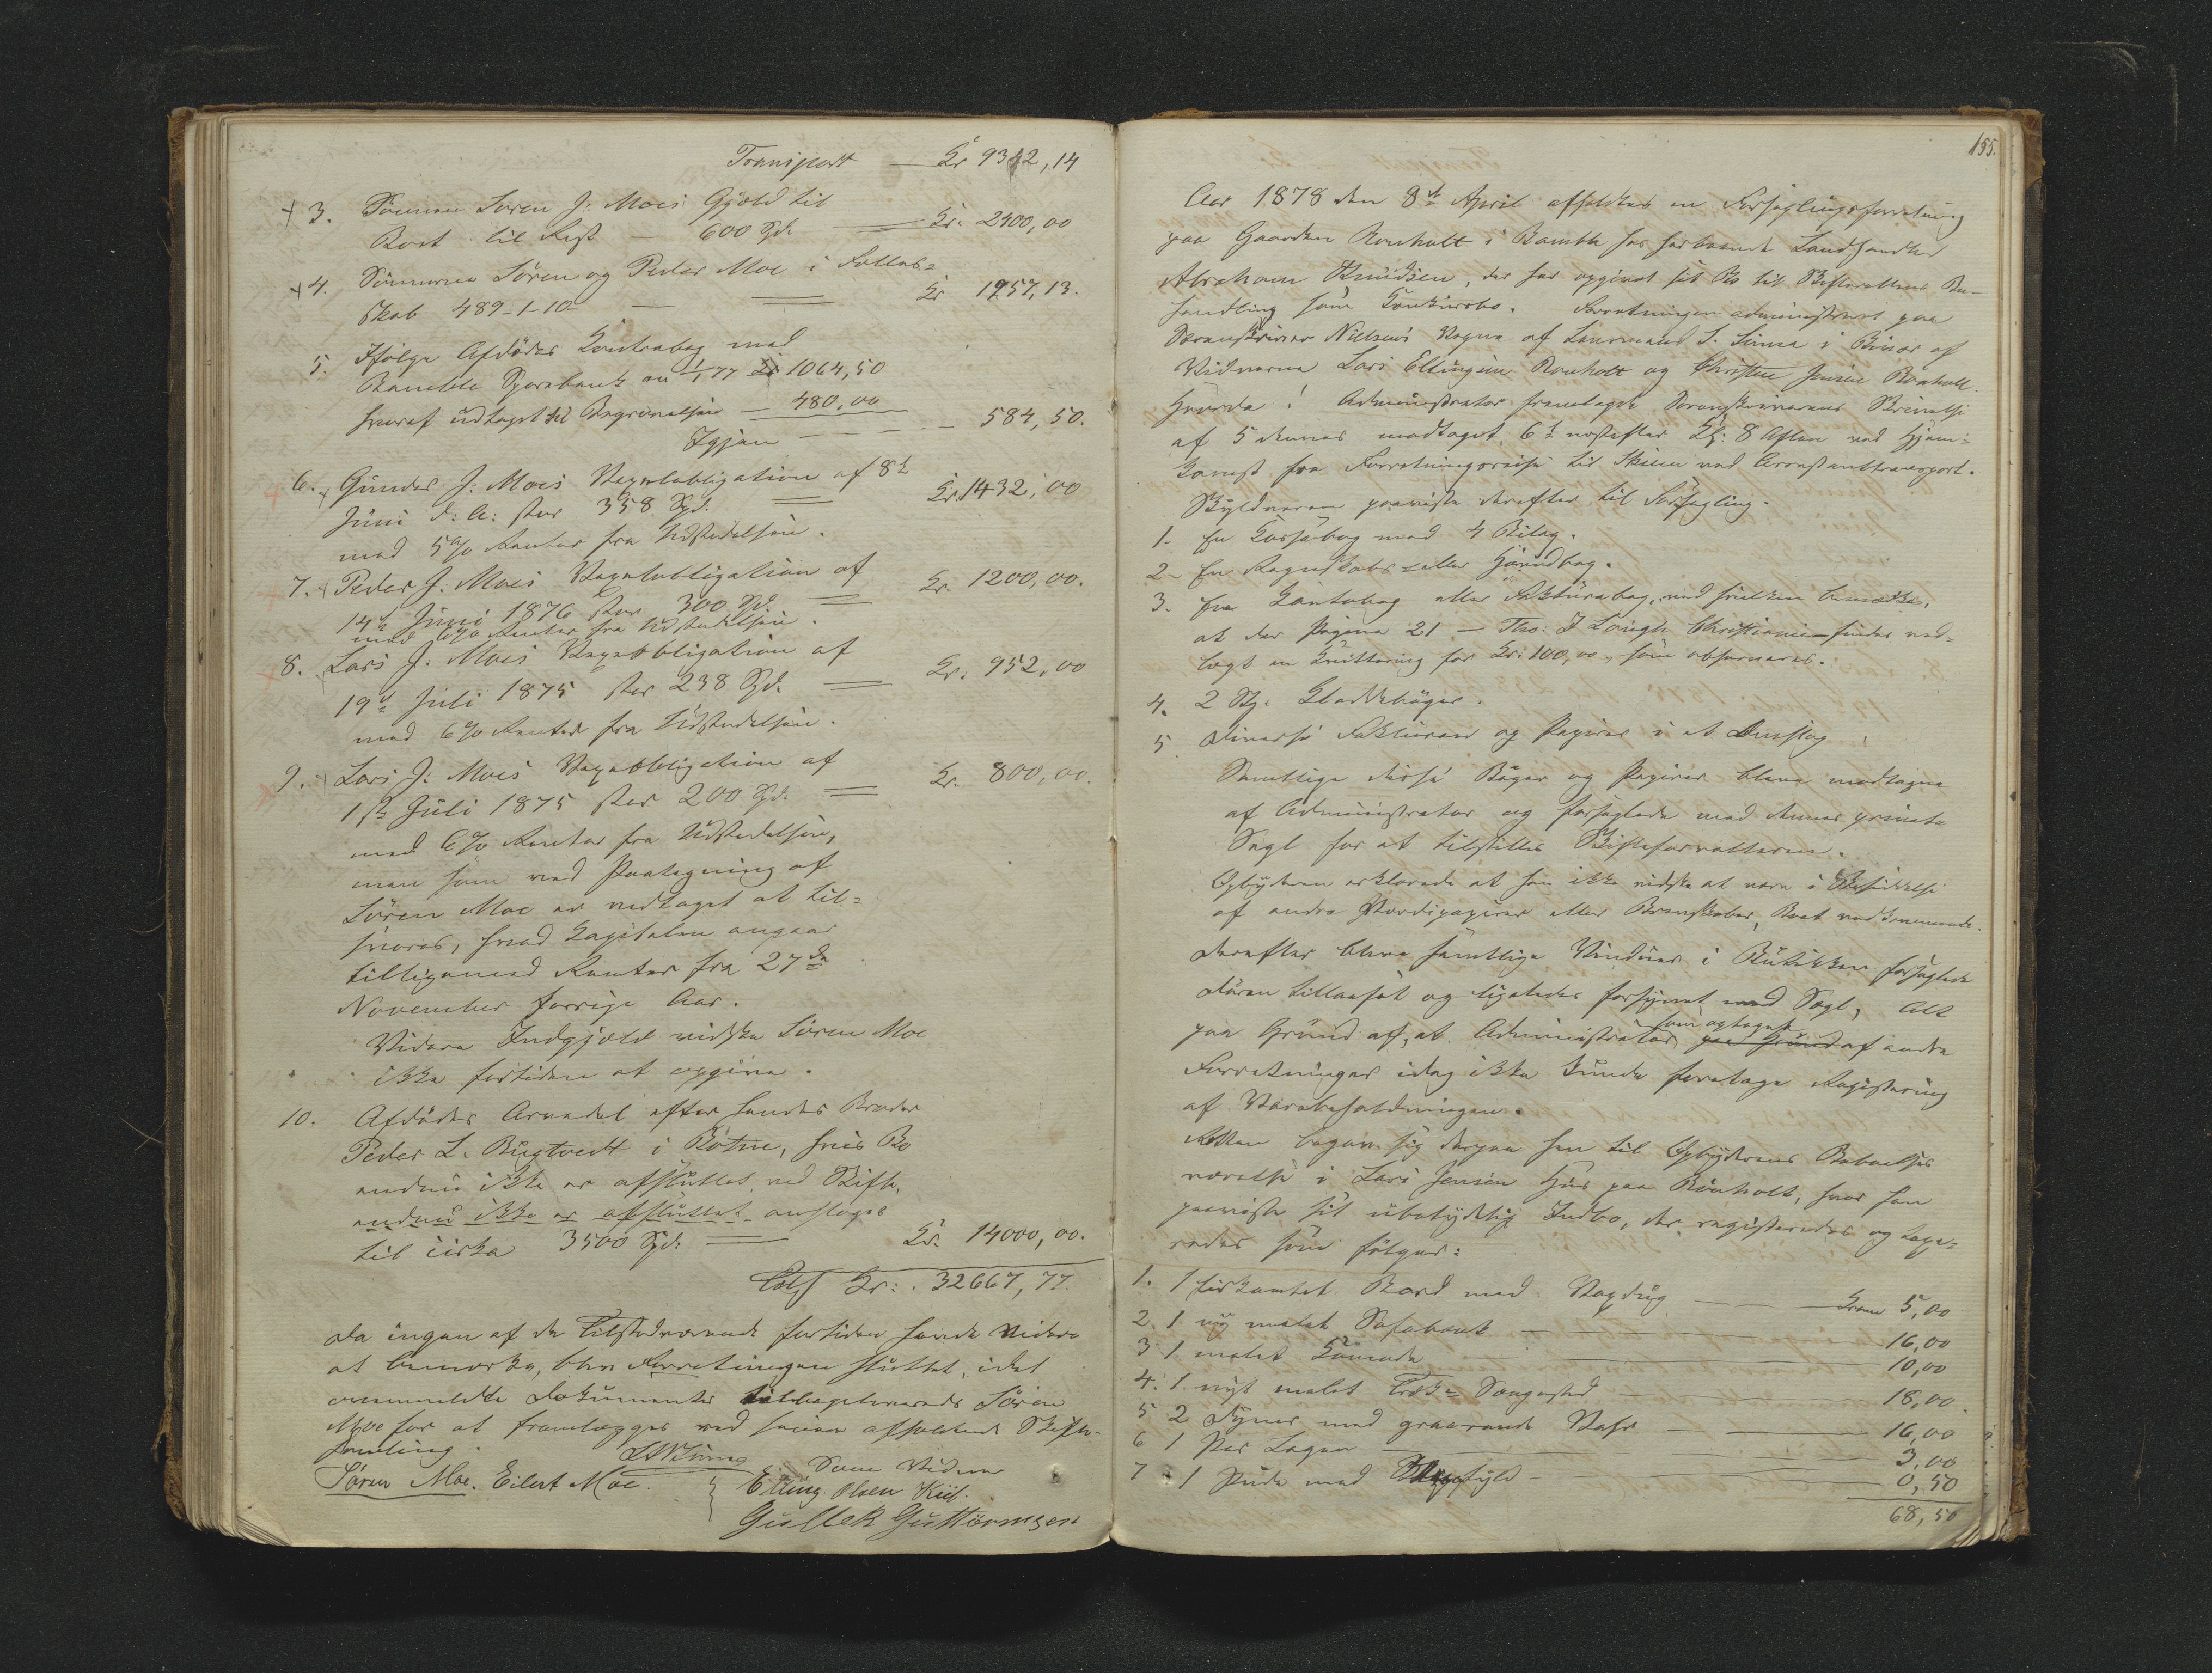 Transport — Kr 9342,14
3. Sønnen Søren J. Moes Gjæld til
Boet til Rest — 600 Spd. — Kr. 2400,00
4. Sønnerne Søren og Peder Moe i Fælles=
skab 489-1-10 — Kr 1957,13.
5. Ifølge Afdødes Kontrabog med
Bamble Sparebank au 1/1 77 Kr 1064,50
hvoraf udtaget til Begravelsen — 480,00
Igjen — 584,50.
6. Gunder J. Moes Vexelobligation af 8de
Juni d: A: stor 358 Spd. Kr. 1432,00
med 5% Renter fra Udstedelsen.
7. Peder J. Moes Vexelobligation af
14de Juni 1876 stor 300 Spd. Kr. 1200,00.
med 6% Renter fra Udstedelsen.
8. Lars J. Moes Vexelobligation af
19de Juli 1875 stor 238 Spd. Kr. 952,00
med 6% Renter fra Udstedelsen.
9. Lars J. Moes Vexelobligation af
1ste Juli 1875 stor 200 Spd. Kr. 800,00.
med 6% Renter fra Udstedelsen,
men som ved Paategning af
Søren Moe er vedtaget at til=
svares, hvad Kapitalen angaar
tilligemed Renter fra 27de
November forrige Aar.
Videre Indgjæld vidste Søren Moe
ikke fortiden at opgive.
10. Afdødes Arvedel efter hendes Broder
Peder L. Bugtvedt i Røtne, hvis Bo
endnu ikke er afsluttet ved Skifte,
endnu ikke er afsluttet anslages
til cirka 3500 Spd: Kr. 14000,00.
Kr: 32667,77.
Da ingen af de Tilstedeværende fortiden havde videre
at bemærke, blev Forretningen sluttet, idet
ovenmeldte Dokumenter tilbageleveredes Søren
Moe for at fremlægges ved senere afholdende Skifte-
samling.
Søren Moe. Eilert Moe.
Som Vidner
Elling Olsen Kiil.
Gullek Guttormsen
155.
Aar 1878 den 8de April afholdtes en Forseglingsforretning
paa Gaarden Rønholt i Bamble hos herboende Landhandler
Abraham Knudsen, der har opgivet sit Bo til Skifterettens Be-
handling som Konkursbo. Forretningen administreret paa
Sorenskriver Nielsens Vegne af Lensmand S. Sinnes i Bivær af
Vidnerne Lars Ellingsen Rønholt og Christen Jensen Rønholt.
Hvorda! Administrator fremlagde Sorenskriverens Skrivelse
af 5 dennes modtaget 6te næstefter Kl: 8 Aften ved Hjem=
komst fra Forretningsreise til Skien med Arrestanttransport.
Skyldneren paaviste derefter til Forsegling.
1. En Kassabog med 4 Bilag.
2. En Regnskabs- eller Haandbog.
3. En Kontobog eller Fakturabog, ved hvilken bemærkes,
at der Pagina 21 — Tho: J Lough Christiania findes ved=
lagt en Kvittering for Kr. 100,00, som observeres.
4. 2 Stk. Kladdebøger.
5 Diverse Fakturaer og Papirer i et Omslag.
Samtlige disse Bøger og Papirer bleve modtagne
af Administrator og forseglede med dennes private
Segl for at tilstilles Skifteforvalteren.
Opbyderen erklærede at han ikke vidste at være i Besiddelse
af andre Værdipapirer eller Brevskaber, Boet vedkommende.
Derefter bleve samtlige Vinduer i Butikken forseglede
Døren tillaaset og ligeledes forsynet med Segl, Alt
paa Grund af, at Administrator som optaget paa Grund af andre
Forretninger idag ikke kunde foretage Registrering
af Varebeholdningen.
Retten begav sig derpaa hen til Opbyderens Beboelses
værelse i Lars Jensen Hus paa Rønholt, hvor han
paaviste sit ubetydelig Indbo, der registreredes og taxe=
redes som følger:
1. 1 firkantet Bord med Voxdug — Kroner 5,00
2. 1 ny malet Sofabænk — 16,00
3 1 malet Komode — 10,00
4. 1 nyt malet Træk- Sengested — 18,00
5 2 Dyner med graarandt Vahr — 16,00
6 1 Par Lagen — 3,00
7 1 Pude med — 0,50
68,50